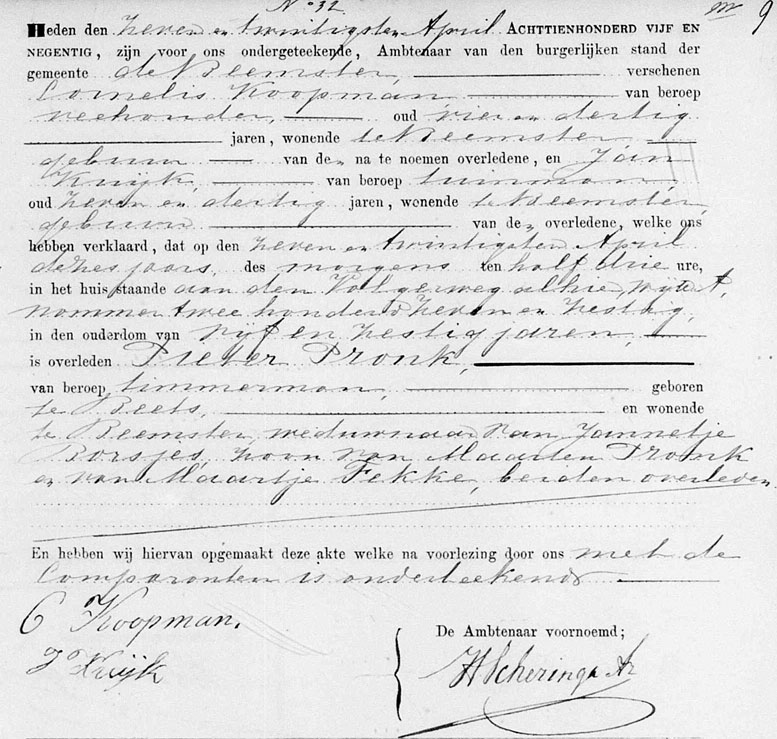 N° 32
m 9
Heden den zeven en twintigsten April ACHTTIENHONDERD VIJF EN
NEGENTIG, zijn voor ons ondergeteekende, Ambtenaar van den burgerlijken stand der
gemeente de Beemster, verschenen
Cornelis Koopman van beroep
veehouder, oud vier en dertig
jaren, wonende te Beemster
gebuur van de na te noemen overledene, en Jan
Kuijk, van beroep tuinman,
oud zeven en dertig jaren, wonende te Beemster,
gebuur van de overledene, welke ons
hebben verklaard, dat op den zeven en twintigsten April
dezes jaars, des morgens ten half drie ure,
in het huis staande aan den Volgerweg alhier, wijk A,
nommer twee honderd zeven en zestig,
in den ouderdom van vijf en zestig jaren,
is overleden Pieter Pronk,
van beroep timmerman, geboren
te Beets, en wonende
te Beemster, weduwnaar van Jannetje
Borsjes, zoon van Maarten Pronk
en van Maartje Fekke, beiden overleden.
En hebben wij hiervan opgemaakt deze akte welke na voorlezing door ons met de
Comparanten is onderteekend
C Koopman.
J Kuijk
De Ambtenaar voornoemd;
H Scheringa Az